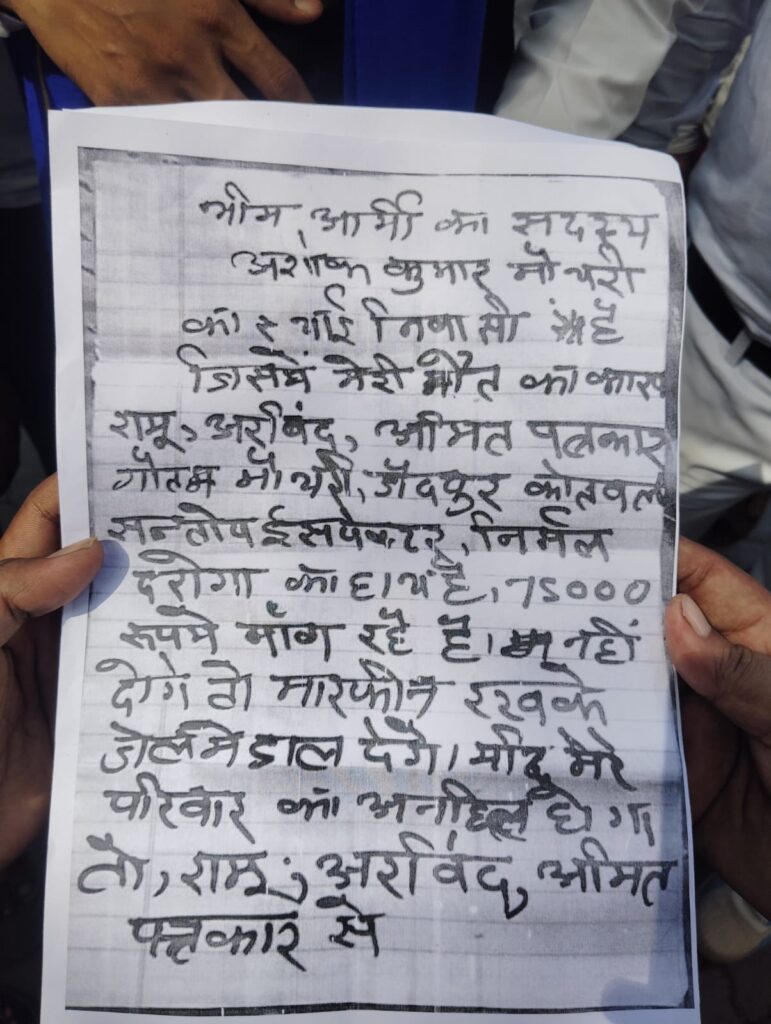 भीम आर्मी का सदस्य
अशोक कुमार मौयरी
का स्थाई निवासी हैं
जिसमें मेरी मौत का कारण
रामू, अरविंद, अमित पत्रकार
गौतम मौयरी, जैदपुर कोतवाल
सन्तोष ईंसपेक्टर, निर्मल
दरोगा का हाथ है, 75000
रूपये माँग रहे है। नहीं
देगे तो मारफीन रखके
जेल मे डाल देगे। मेरे
परिवार का अनहित होगा
तो, रामू, अरविंद, अमित
पत्रकार से